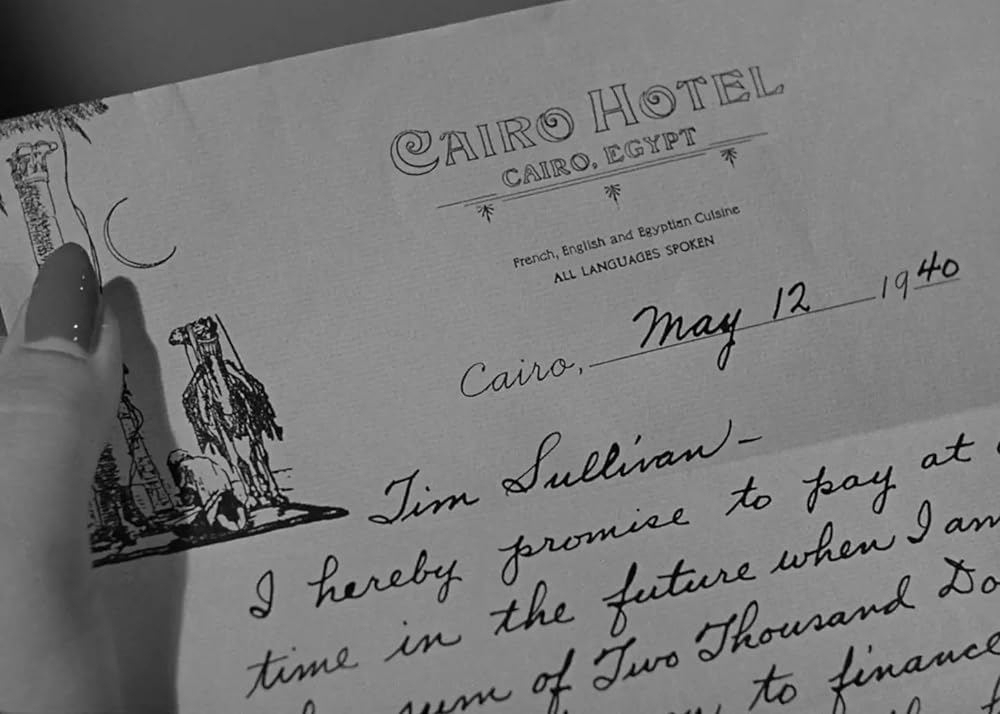 CAIRO HOTEL
CAIRO, EGYPT
French, English and Egyptian Cuisine
ALL LANGUAGES SPOKEN
Cairo, May 12 1940
Tim Sullivan -
I hereby promise to pay at
time in the future when I am
sum of Two Thousand
to finance